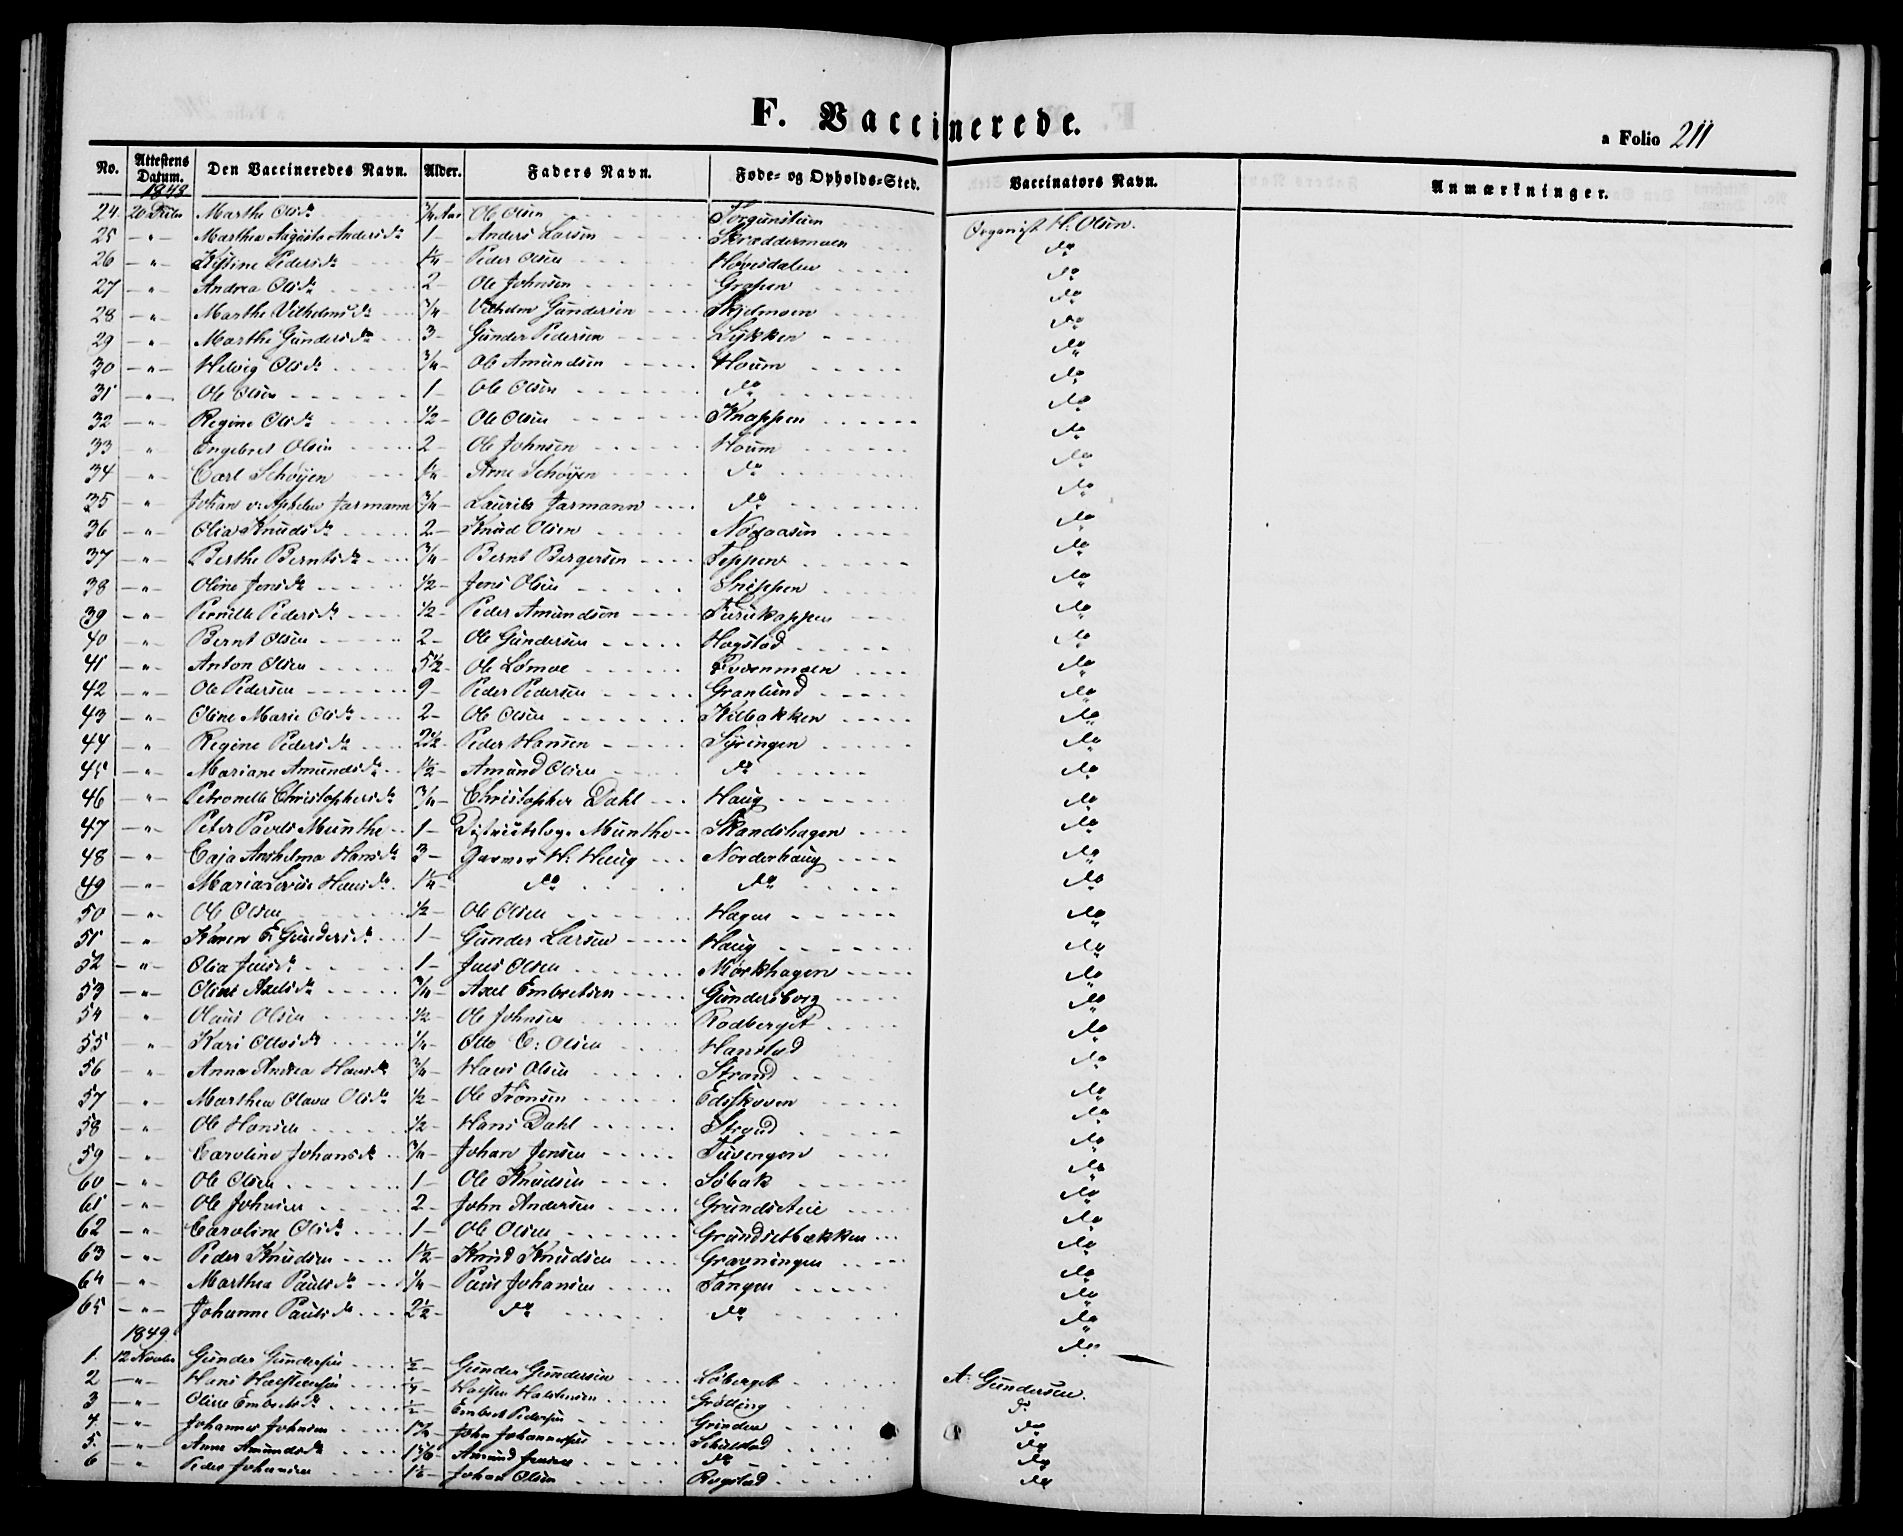 F. Vaccinerede.
a Folio 211
No. Attestens Datum. Den Vaccineredes Navn. Alder. Faders Navn. Føde- og Opholds-Sted. Vaccinators Navn. Anmærkninger.
1848
24 Marthe Olsdr Ole Olsen Organist H. Olsen.
25 -"- Marthea Augusta Andersdr 1- Anders Larsen Skræddermoen do
26 -"- Kristine Pedersdr Peder Olsen Hovisdalen do
27 -"- Andrea Olsdr 2- Ole Johnsen Graven do
28 -"- Marthe Vilhelmsdr 3/4- Vilhelm Gundersen do
29 -"- Marthe Gundersdr 3- Gunder Pedersen Lykken do
30 -"- Helvig Olsdr 3/4- Ole Amundsen Houm do
31 -"- Ole Olsen 1- Ole Olsen do do
32 -"- Regine Olsdr 1/2- Ole Olsen Knappen do
33 -"- Engebret Olsen 2- Ole Johnsen Houm do
34 -"- Carl Schøyen Arne Schøyen do do
35 -"- Johan Jarmann 3/4- Laurits Jarmann do do
36 -"- Olia Knudsdr 2- Knud Olsen do
37 -"- Berthe Berntsdr 3/4- Bernt Bergersen Teppen do
38 -"- Oline Jensdr 1/2- Jens Olsen Snippen do
39 -"- Pernille Pedersdr 1/2- Peder Amundsen Furukappen do
40 -"- Bernt Olsen 2- Ole Gundersen Hagstad do
41 -"- Anton Olsen 5 1/2- Ole Lømoe do
42 -"- Ole Pedersen 9- Peder Pedersen Granlund do
43 -"- Oline Marie Olsdr 2- Ole Olsen Kilbakken do
44 -"- Regine Pedersdr 2 1/2- Peder Hansen Syringen do
45 -"- Mariane Amundsdr 1 1/2- Amund Olsen do do
46 -"- Petronelle Christophersdr 3/4- Christopher Dahl Haug do
47 -"- Peter Pavels Munthe 1- Districtslæge Munthe Skandshagen do
48 -"- Caja Anshelma Hansdr 3- H. Haug Norderhaug do
49 -"- Maria Lovise Hansdr 1 1/4- do do do
50 -"- Ole Olsen 1/2- Ole Olsen Hagen do
51 -"- Karen E. Gundersdr 1- Gunder Larsen Haug do
52 -"- Olia Jensdr 1- Jens Olsen Mørkhagen do
53 -"- Oline Axelsdr 3/4- Axel Embretsen Gundersborg do
54 -"- Olaus Olsen 1/2- Ole Johnsen Rodberget do
55 -"- Kari Ottosdr 1/4- Otto C. Olsen Hanstad do
56 -"- Anne Andrea Hansdr 3/4- Hans Olsen Strand do
57 -"- Marthea Olava Olsdr 1/2- Ole Tronsen Edsskoven do
58 -"- Ole Hansen 1/2- Hans Dahl Strand do
59 -"- Caroline Johansdr 3/4- Johan Jensen Tuvingen do
60 -"- Ole Olsen 1- Ole Knudsen Søbak do
61 -"- Ole Johnsen 2- John Andersen Grundset do
62 -"- Caroline Olsdr 1- Ole Olsen Grundsetbækken do
63 -"- Peder Knudsen 1 1/2- Knud Knudsen Gravningen do
64 -"- Marthea Paulsdr 1/4- Paul Johansen Tangen do
65 -"- Johanne Paulsdr 2 1/2- do do do
1849
1. 12 Novbr Gunder Gundersen 1/2- Gunder Gundersen Løberget A. Gundersen.
2 -"- Hans Halstensen Halsten Halstensen Grøtting do
3 -"- Oline Embretsdr 1/2- Embret Pedersen Grinden do
4. -"- Johannes Johnsen John Johannessen Schulstad do
5. -"- Anne Amundsdr Amund Jensen do do
6 -"- Peder Johansen 1 1/2- Johan Olsen Rogstad do